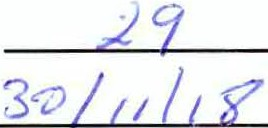 29
30/11/18